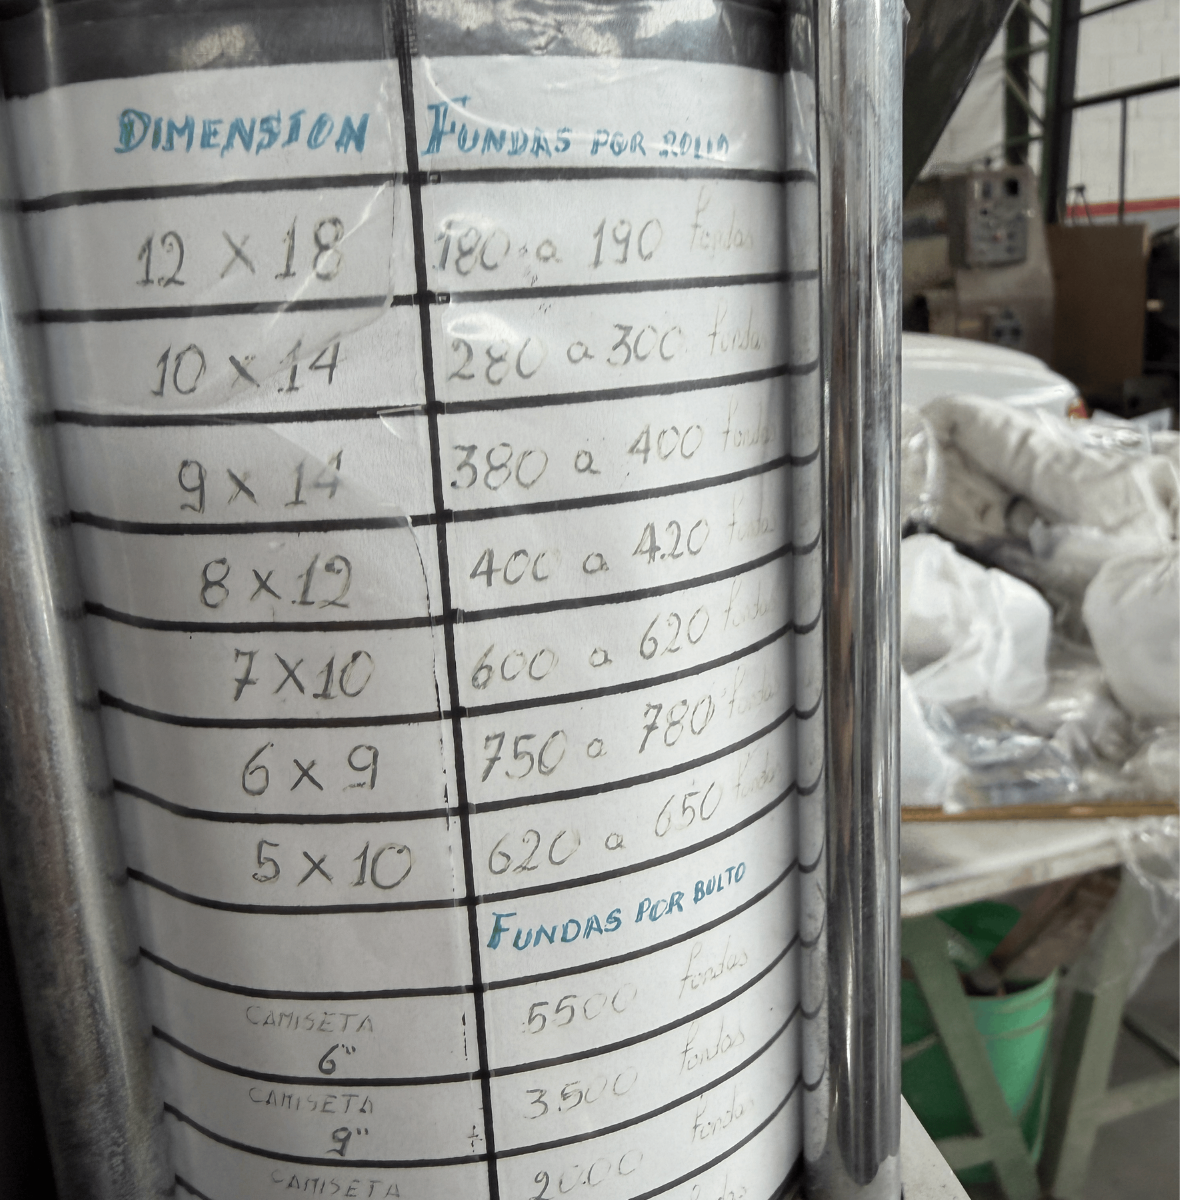 DIMENSION FUNDAS POR ROLLO
12 x 18 180 a 190 fundas
10 x 14 280 a 300 funda
9 x 14 380 a 400 funda
8 x 12 400 a 420 funda
7 x 10 600 a 620 funda
6 x 9 750 a 780 funda
5 x 10 620 a 650 funda
FUNDAS POR BULTO
CAMISETA 6" 5500 fundas
CAMISETA 9" 3500 fundas
CAMISETA 2000 fundas